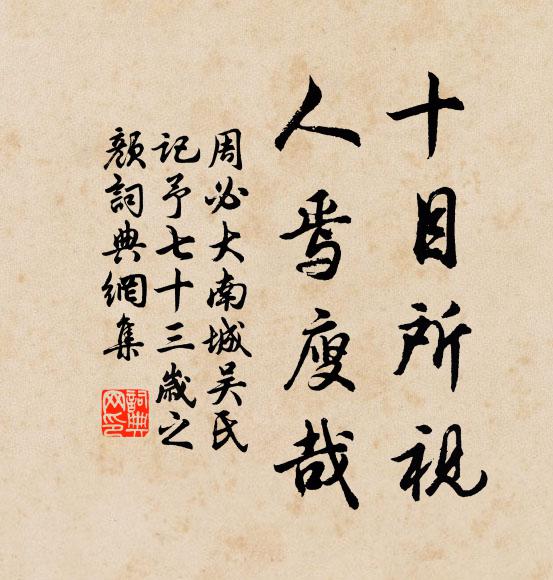 十目所視
人焉廋哉
周必大南城吴氏
記予七十三歲之
顏詞典網集
詞典
网印